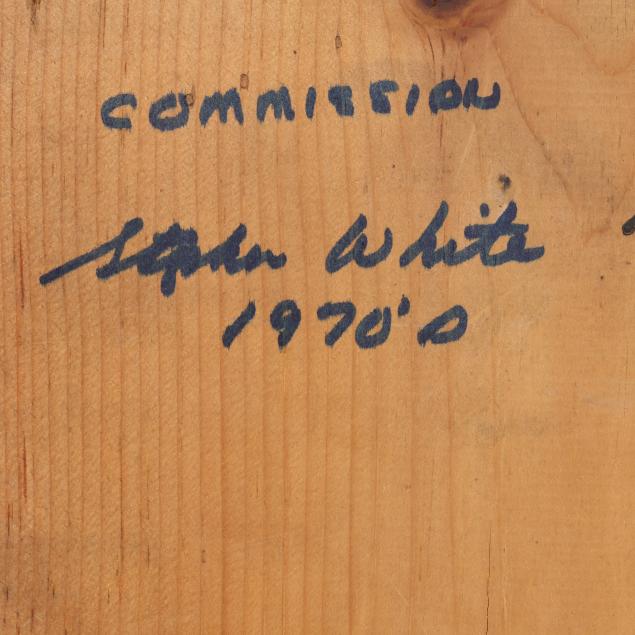 COMMISSION
Stephen White
1970's